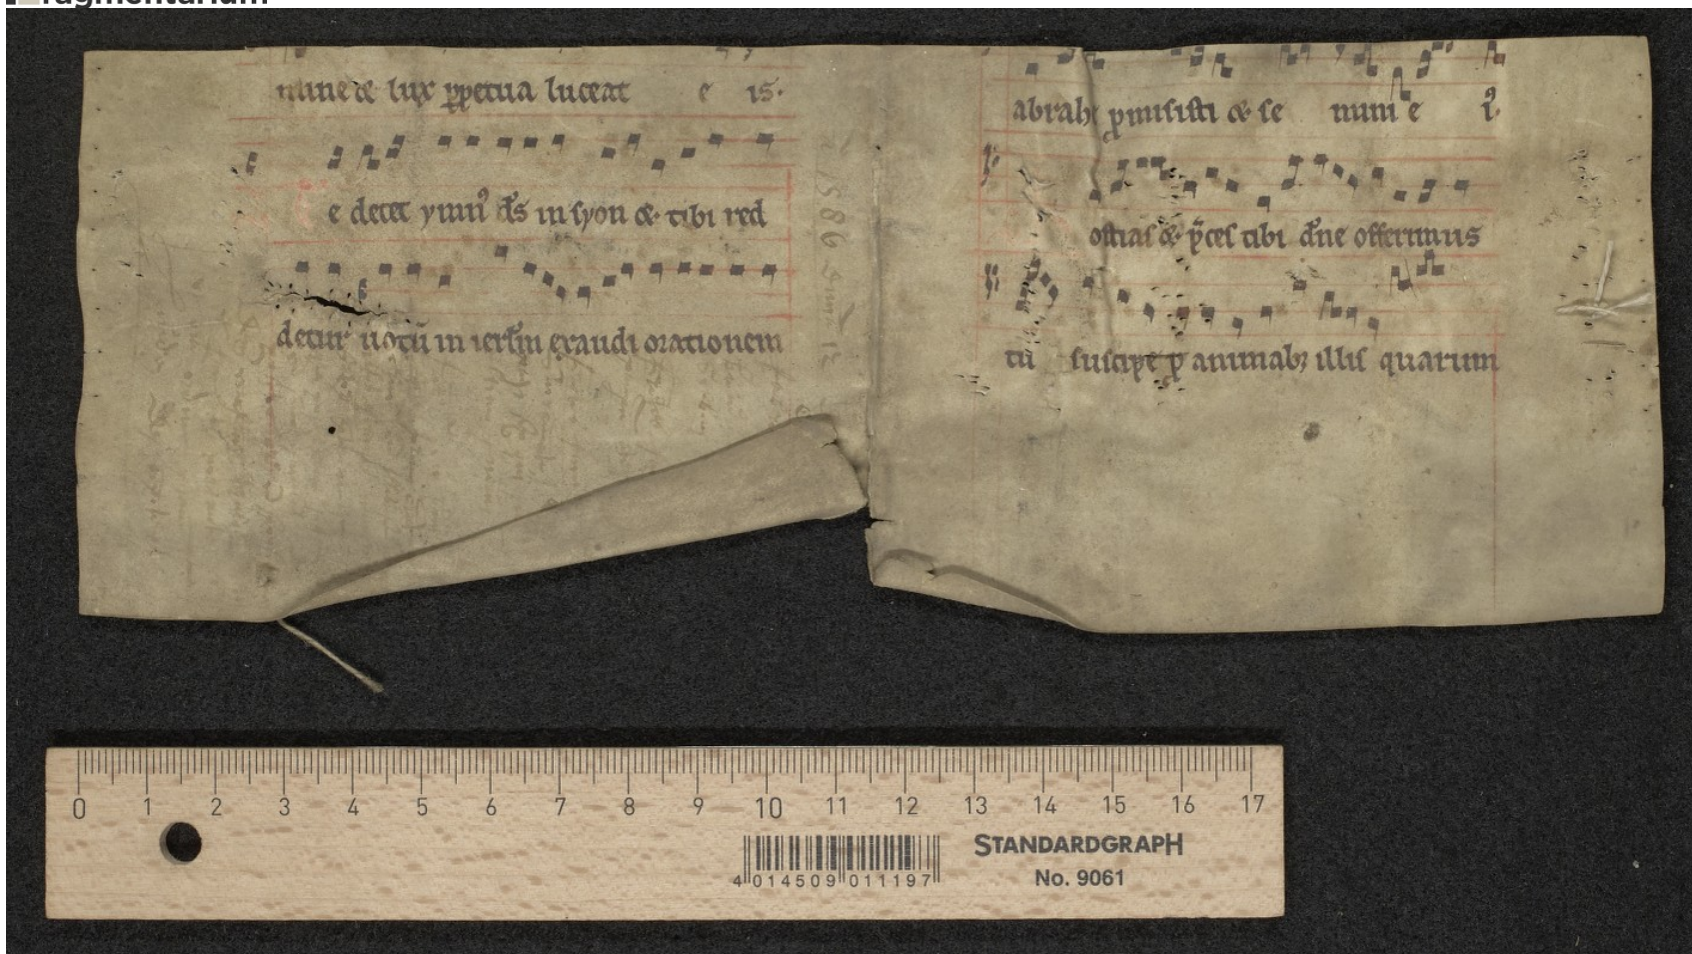 mine & lux ꝑpetua luceat e is.
e decet ymnꝰ d̄s in syon & tibi red
detur uotū in ierl̄m exaudi orationem
abrahe ꝓmisisti & se mini eiꝰ.
ostias & p̄ces tibi dn̄e offerimus
tu suscipe ꝓ animabꝫ illis quarum
0 1 2 3 4 5 6 7 8 9 10 11 12 13 14 15 16 17
4 014509 011197
STANDARDGRAPH
No. 9061